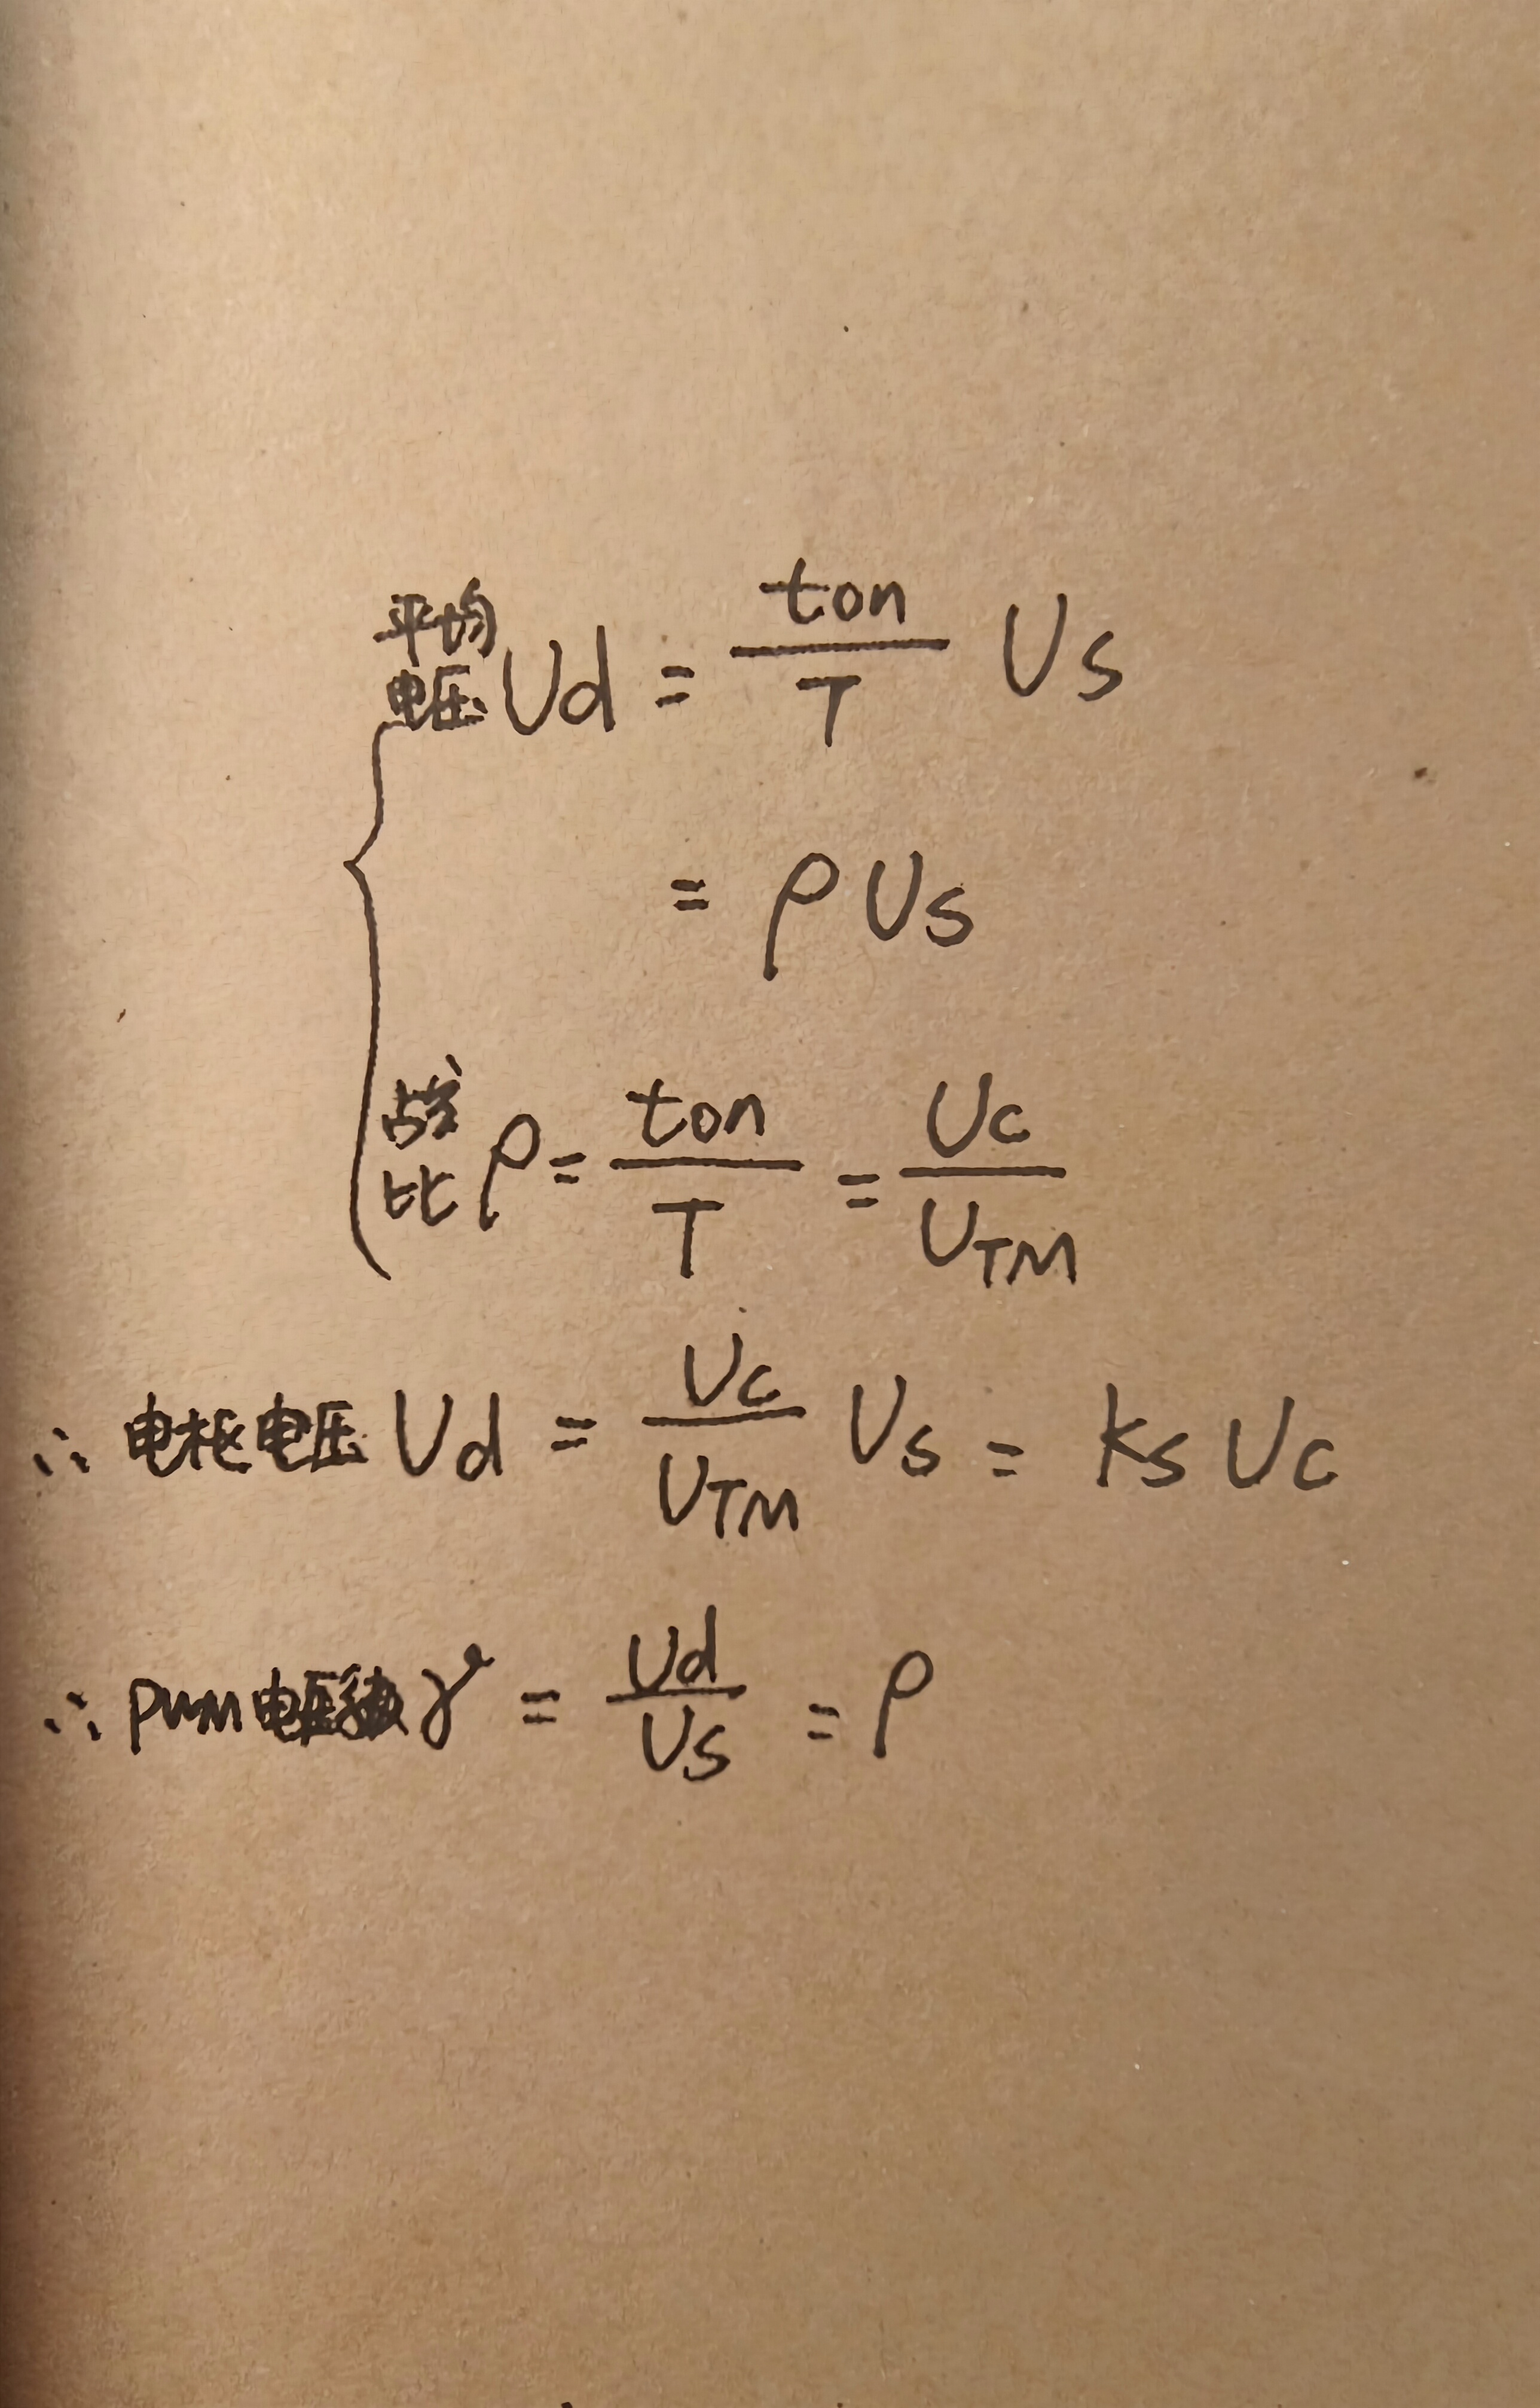 平均电压 Ud = ton/T Us
= ρ Us
占空比 ρ = ton/T = Uc/UTM
∴ 电枢电压 Ud = Uc/UTM Us = Ks Uc
∴ PWM电压 γ = Ud/Us = ρ